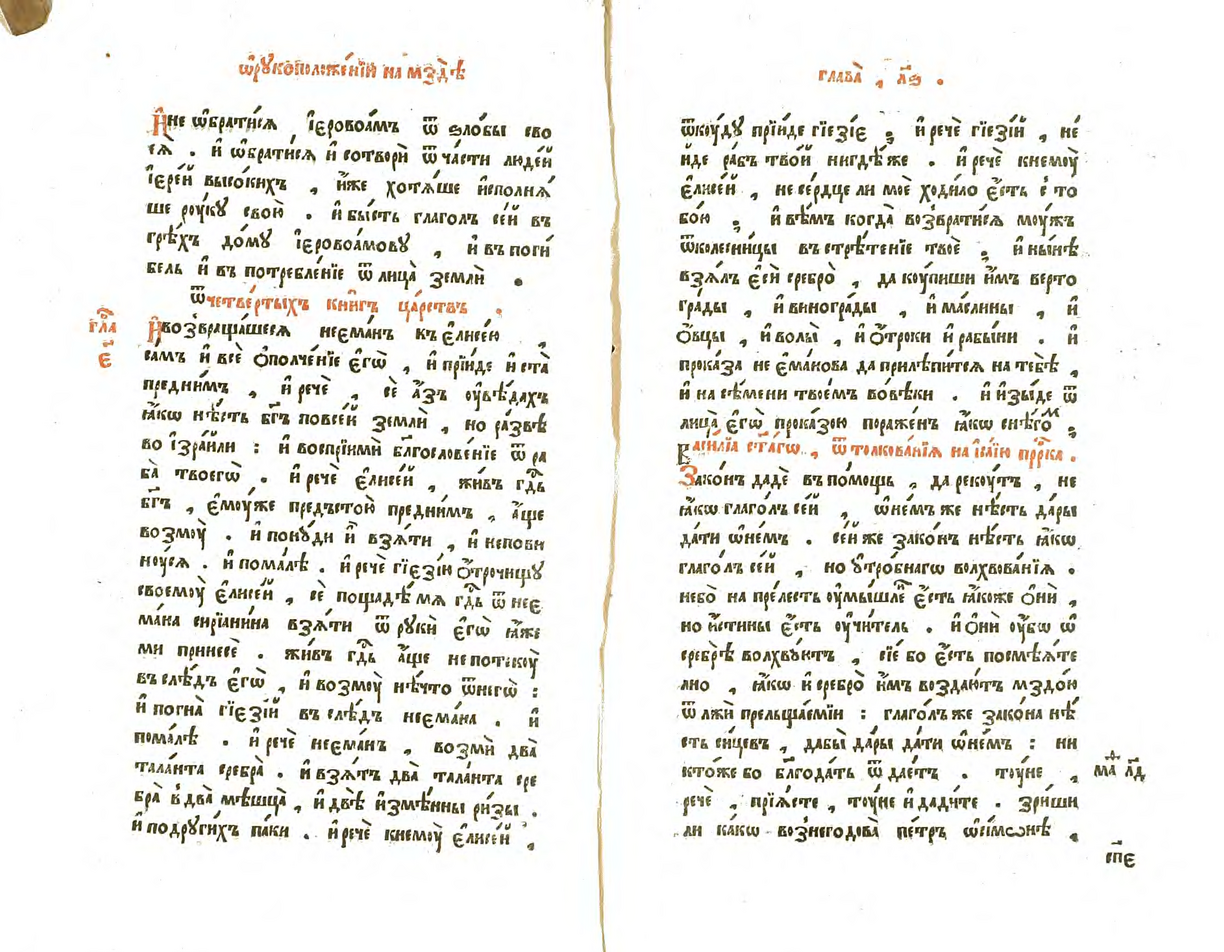 ѡ҆рꙋкоположе́нїи на мздѣ̀
И҆не ѡ҆брати́сѧ і҆еровоа́мъ ѿ ѕло́бы сво
еѧ̀ . и҆ ѡ҆брати́сѧ и҆ сотворѝ ѿ ча́сти люде́й
і҆ере́й высо́кихъ , и҆́же хотѧ́ше и҆сполнѧ́
ше роу́кꙋ свою̀ . и҆ бы́сть глаго́лъ се́й въ
грѣ́хъ до́мꙋ і҆еровоа́мовꙋ , и҆ въ поги́
бель и҆ въ потребле́нїе ѿ лица̀ землѝ .
ѿ четве́ртыхъ кни́гъ ца́рствъ .
гла̑
є҃
И҆возвраща́шесѧ неема́нъ къ є҆лисе́ю ,
са́мъ и҆ всѐ ѻ҆полче́нїе є҆гѡ̀ , и҆ прїи́де и҆ ста̀
предни́мъ , и҆ речѐ , сѐ а҆́зъ оу҆вѣ́дахъ
ꙗ҆́кѡ нѣ́сть бг҃ъ повсе́й землѝ , но ра́звѣ
во і҆зра́или : и҆ воспрїимѝ бл҃гослове́нїе ѿ ра
ба̀ твоегѡ̀ . и҆ речѐ є҆лисе́й , жи́въ гд҇ь
бг҃ъ , є҆моу́же предъстою̀ предни́мъ , а҆́ще
возмоу̀ . и҆ понꙋ́ди и҆̀ взѧ́ти , и҆ непови
ноу́сѧ . и҆ пома́лѣ . и҆ речѐ гїезі́ю ѻ҆трочищꙋ
своемоу̀ є҆лисе́й , сѐ пощадѣ́ мѧ гд҇ь ѿ нее
ма́на сирїа́нина взѧ́ти ѿ рꙋкѝ є҆гѡ̀ ꙗ҆́же
ми принесѐ . жи́въ гд҇ь а҆́ще не потекоу̀
въ слѣ́дъ є҆гѡ̀ , и҆ возмоу̀ нѣ́что ѿнегѡ̀ :
и҆ погна̀ гїезі́й въ слѣ́дъ неема́на . и҆
пома́лѣ . и҆ речѐ неема́нъ , возмѝ два̀
тала́нта сребра̀ . и҆ взѧ́тъ два̀ тала́нта сре
бра̀ в̾ два̀ мѣшца̀ , и҆ двѣ̀ и҆змѣ́нны ри́зы .
и҆ подрꙋги́хъ па́ки . и҆ речѐ кнемоу̀ є҆лисе́й ,
глава̀ , л҃ѕ .
ѿкоу́дꙋ прїи́де гїезі́е ; и҆ речѐ гїезі́й , не́
и҆де ра́бъ тво́й нигдѣ́же . и҆ речѐ кнемоу̀
є҆лисе́й , не се́рдце ли моѐ ходи́ло є҆́сть с̾ то
бо́ю ; и҆ вѣ́мъ когда̀ возврати́сѧ моу́жъ
ѿколесни́цы въ стрѣ́тенїе твоѐ ; и҆ ны́нѣ
взѧ́лъ є҆сѝ сребро̀ , да коу́пиши и҆́мъ верто
гра́ды , и҆ виногра́ды , и҆ ма́слины , и҆
ѻ҆́вцы , и҆ волы̀ , и҆ ѻ҆́троки и҆ рабы́ни . и҆
прока́за не є҆ма́нова да прилѣпи́тсѧ на тебѣ̀ ,
и҆ на сѣ́мени твое́мъ во вѣ́ки . и҆ и҆зы́де ѿ
лица̀ є҆гѡ̀ прока́зою пораже́нъ ꙗ҆́кѡ снѣ́гоⷨ .
Васи́лїа ст҃а́гѡ , ѿ толкова́нїѧ на і҆са́їю прⷪ҇ро́ка .
Зако́нъ дадѐ въ по́мощь , да рекоу́тъ , не
ꙗ҆́кѡ глаго́лъ се́й , ѡ҆не́мъ же нѣ́сть да́ры
да́ти ѡ҆не́мъ . се́й же зако́нъ нѣ́сть ꙗ҆́кѡ
глаго́лъ се́й , но ᲂутро́бнагѡ волхвова́нїѧ .
небо̀ на пре́лесть оу҆мы́шле є҆́сть ꙗ҆́коже ѻ҆нѝ ,
но и҆́стины є҆́сть оу҆чи́тель . и҆ ѻ҆нѝ оу҆́бѡ ѡ҆
сребрѣ̀ волхвꙋ́ютъ , сїе́ бо є҆́сть посмѣѧ́те
лно , ꙗ҆́кѡ и҆ сребро̀ и҆́мъ воздаю́тъ мздо́ю
ѿ лжѝ прельща́емїи : глаго́лъ же зако́на нѣ́
сть си́цевъ , дабы̀ да́ры да́ти ѡ҆не́мъ : ни
кто́же бо бл҃года́ть ѿ дае́тъ . тоу́не ,
мⷴ҇а л҃д
речѐ , прїѧ́сте , тоу́не и҆ дади́те . зри́ши
ли ка́кѡ вознегодова̀ пе́тръ ѡ҆си́мѡнѣ ,
сп҃е